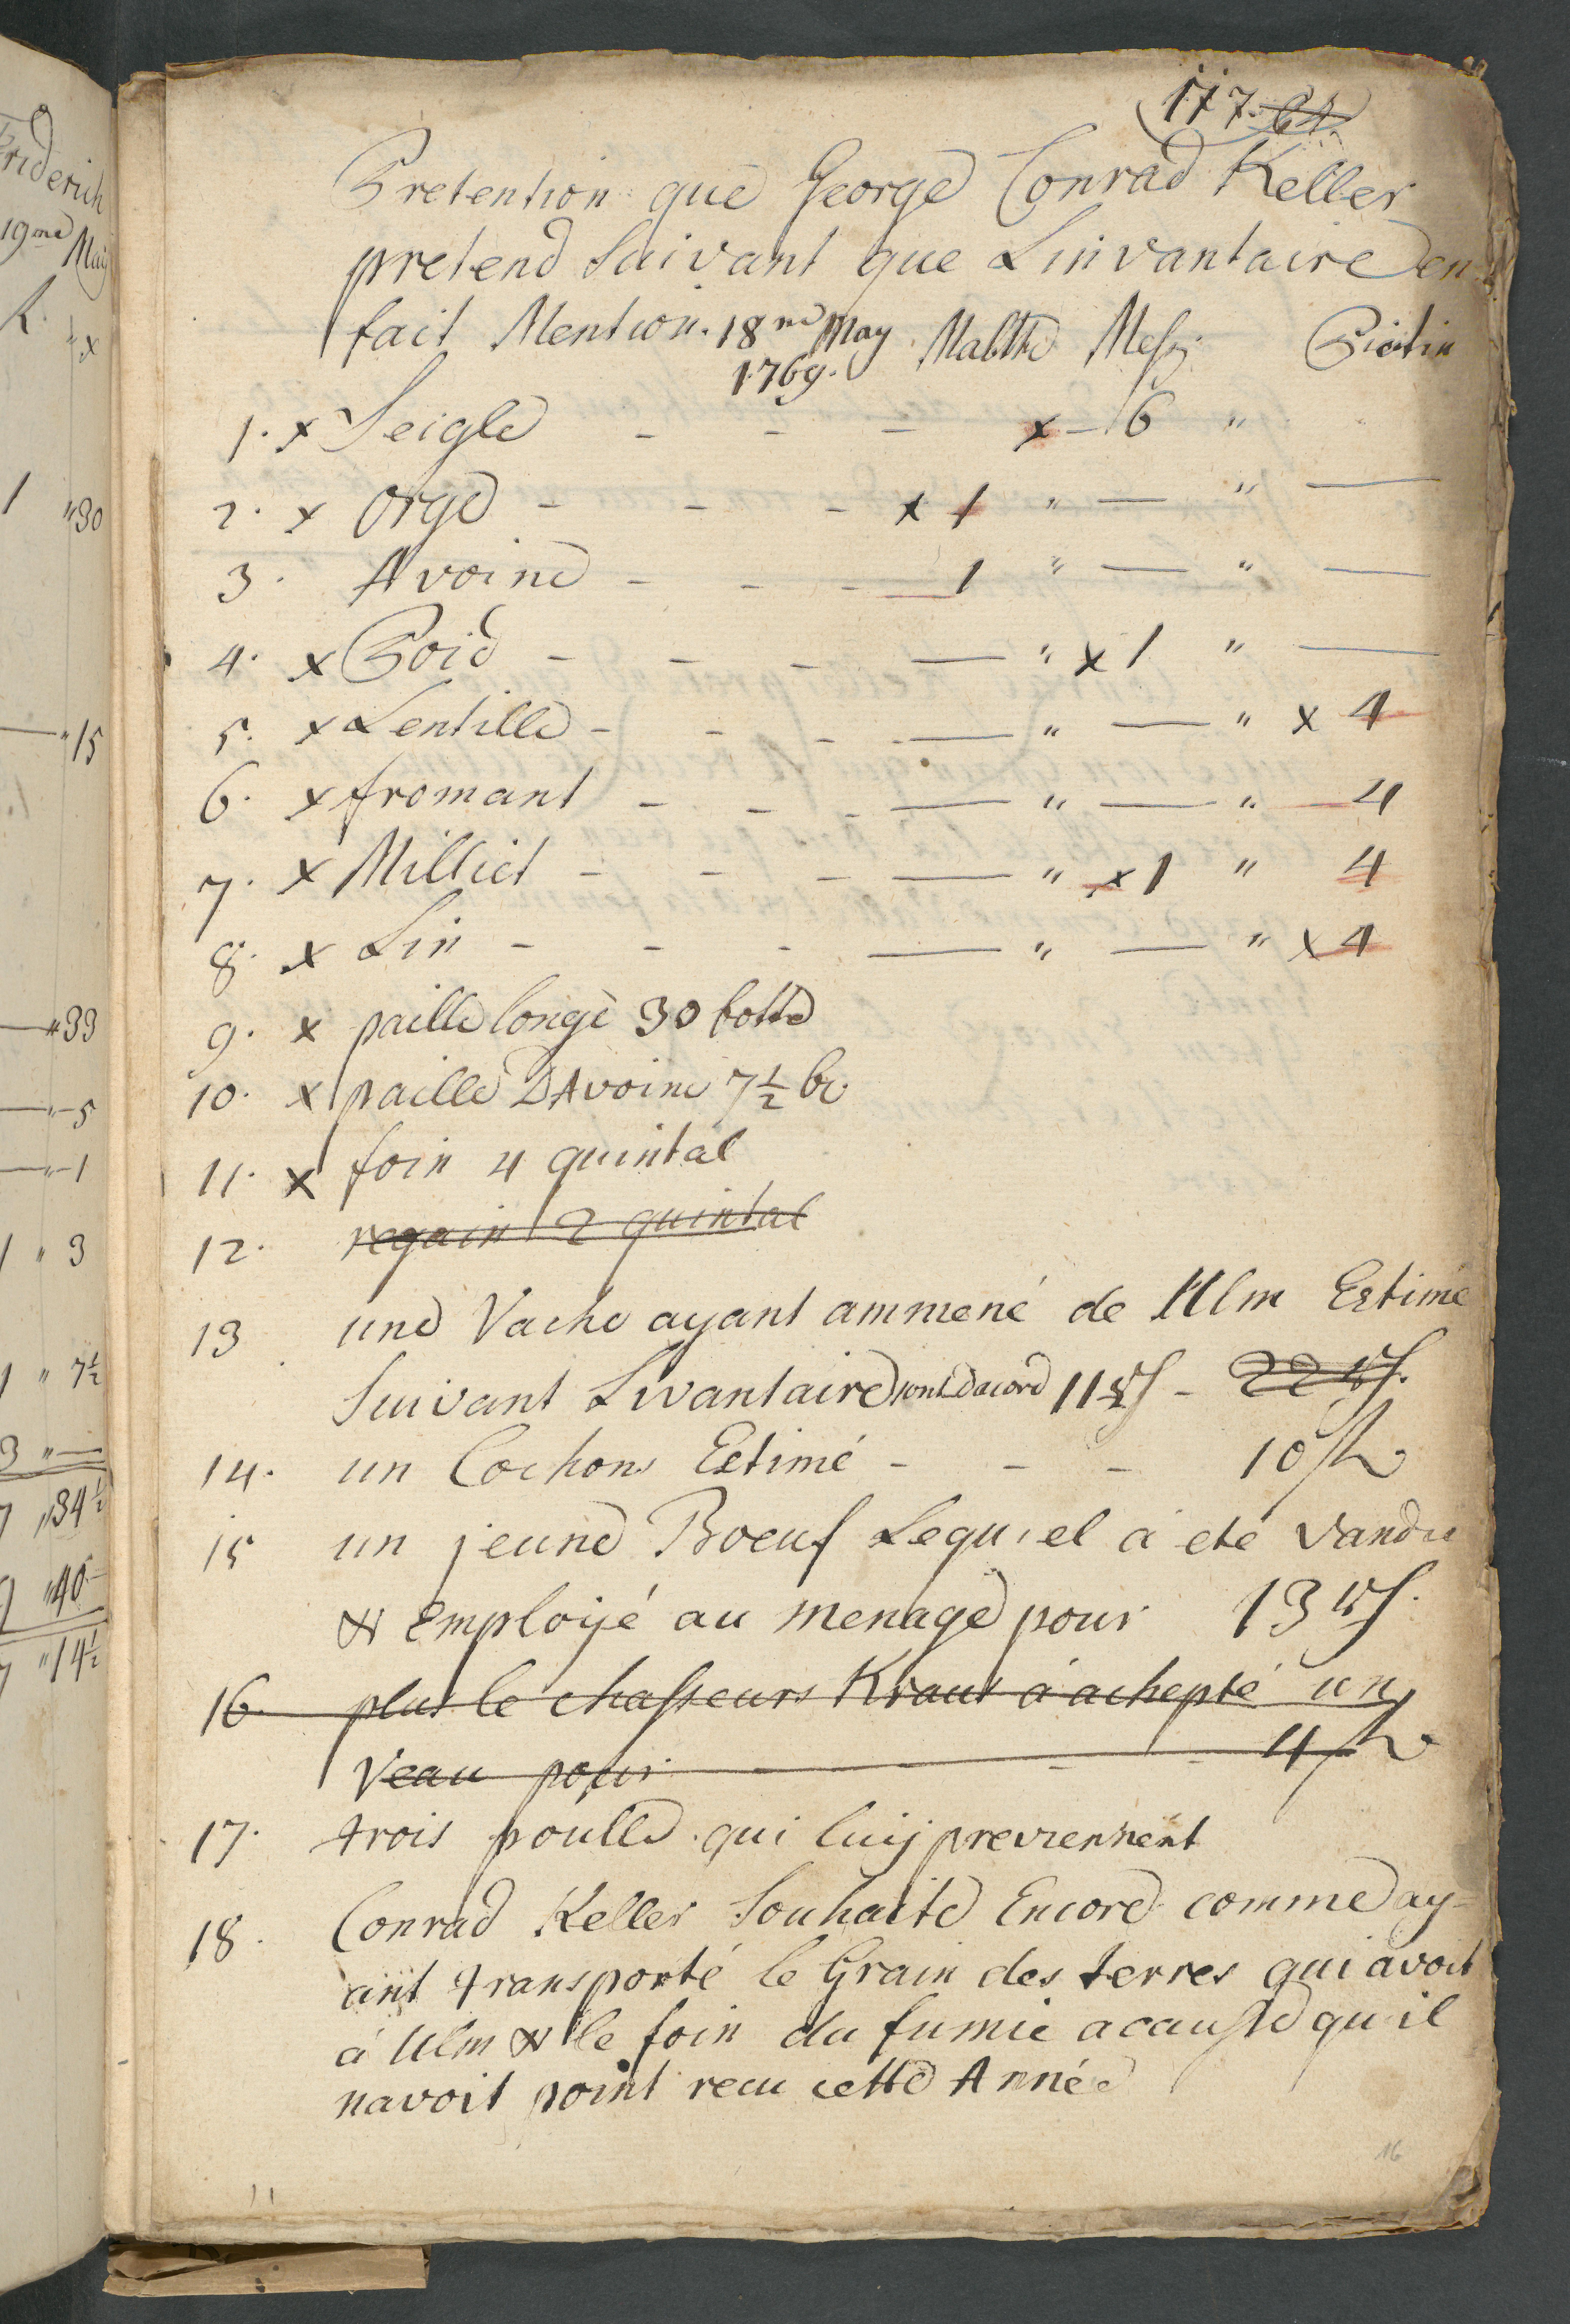 117. 64.
Pretention que George Conrad Keller
pretend Suivant que Linvantaire en
fait Mention. 18me May Malthe Mess: Picotin
1769.
1. x Seigle - - - x - 6 "
2. x Orge - - - x 1 " — " —
3. Avoine - - - 1 " — " —
4. x Poid - - - — " x 1 " —
5. x Lentille - - - — " — " x 4
6. x fromant - - - — " — " 4
7. x Milliet - - - — " x 1 " 4
8. x Lin - - - — " — " x 4
9. x paille longe 30 botte
10. x paille DAvoine 7½ bo
11. x foin 4 quintal
12. regain 2 quintal
13 une Vache ayant ammené de Ulm Estimé
Suivant Livantaire sont dacord 11 - 22
14. un Cochons Estimé - - - 10
15 un jeune Boeuf Lequel à eté vandu
& Employé au menage pour 13
16. plus le chasseurs Kraus á achepté un
Veau pour - - - 4
17. trois poulle qui luy previennent
18. Conrad Keller Souhaite Encore comme ay-
ant transporté le Grain des terres qui avoit
á Ulm & le foin du fumie a causse qu'il
navoit point recu cette Année
16
11
Friderich
19me May
x
1 "30
— "15
— "33
— "-5
— "-1
1 " 3
1 " 7½
3 " —
7 "34½
9 "40-
7 "14½